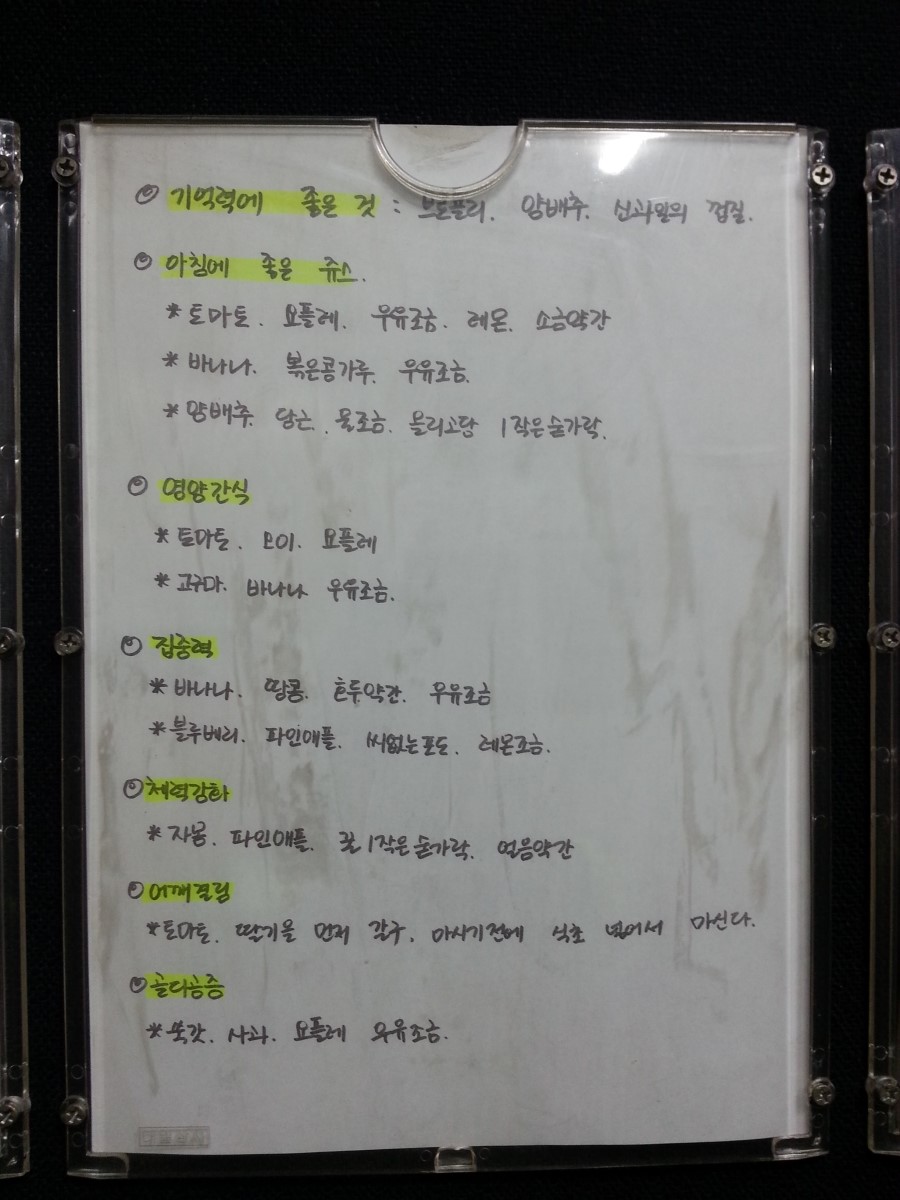 ◎ 기억력에 좋은 것 : 브로콜리. 양배추. 신과일의 껍질.
◎ 아침에 좋은 쥬스.
* 토마토. 요플레. 우유조금. 레몬. 소금약간
* 바나나. 볶은콩가루. 우유조금.
* 양배추. 당근. 물조금. 올리고당 1작은숟가락.
◎ 영양간식
* 토마토. 오이. 요플레
* 고구마. 바나나 우유조금.
◎ 집중력
* 바나나. 땅콩. 호두약간. 우유조금
* 블루베리. 파인애플. 씨없는포도. 레몬조금.
◎ 체력강화
* 자몽. 파인애플. 꿀1작은숟가락. 얼음약간
◎ 어깨결림
* 토마토. 딸기을 먼저 갈구. 마시기전에 식초 넣어서 마신다.
◎ 골다공증
* 쑥갓. 사과. 요플레 우유조금.